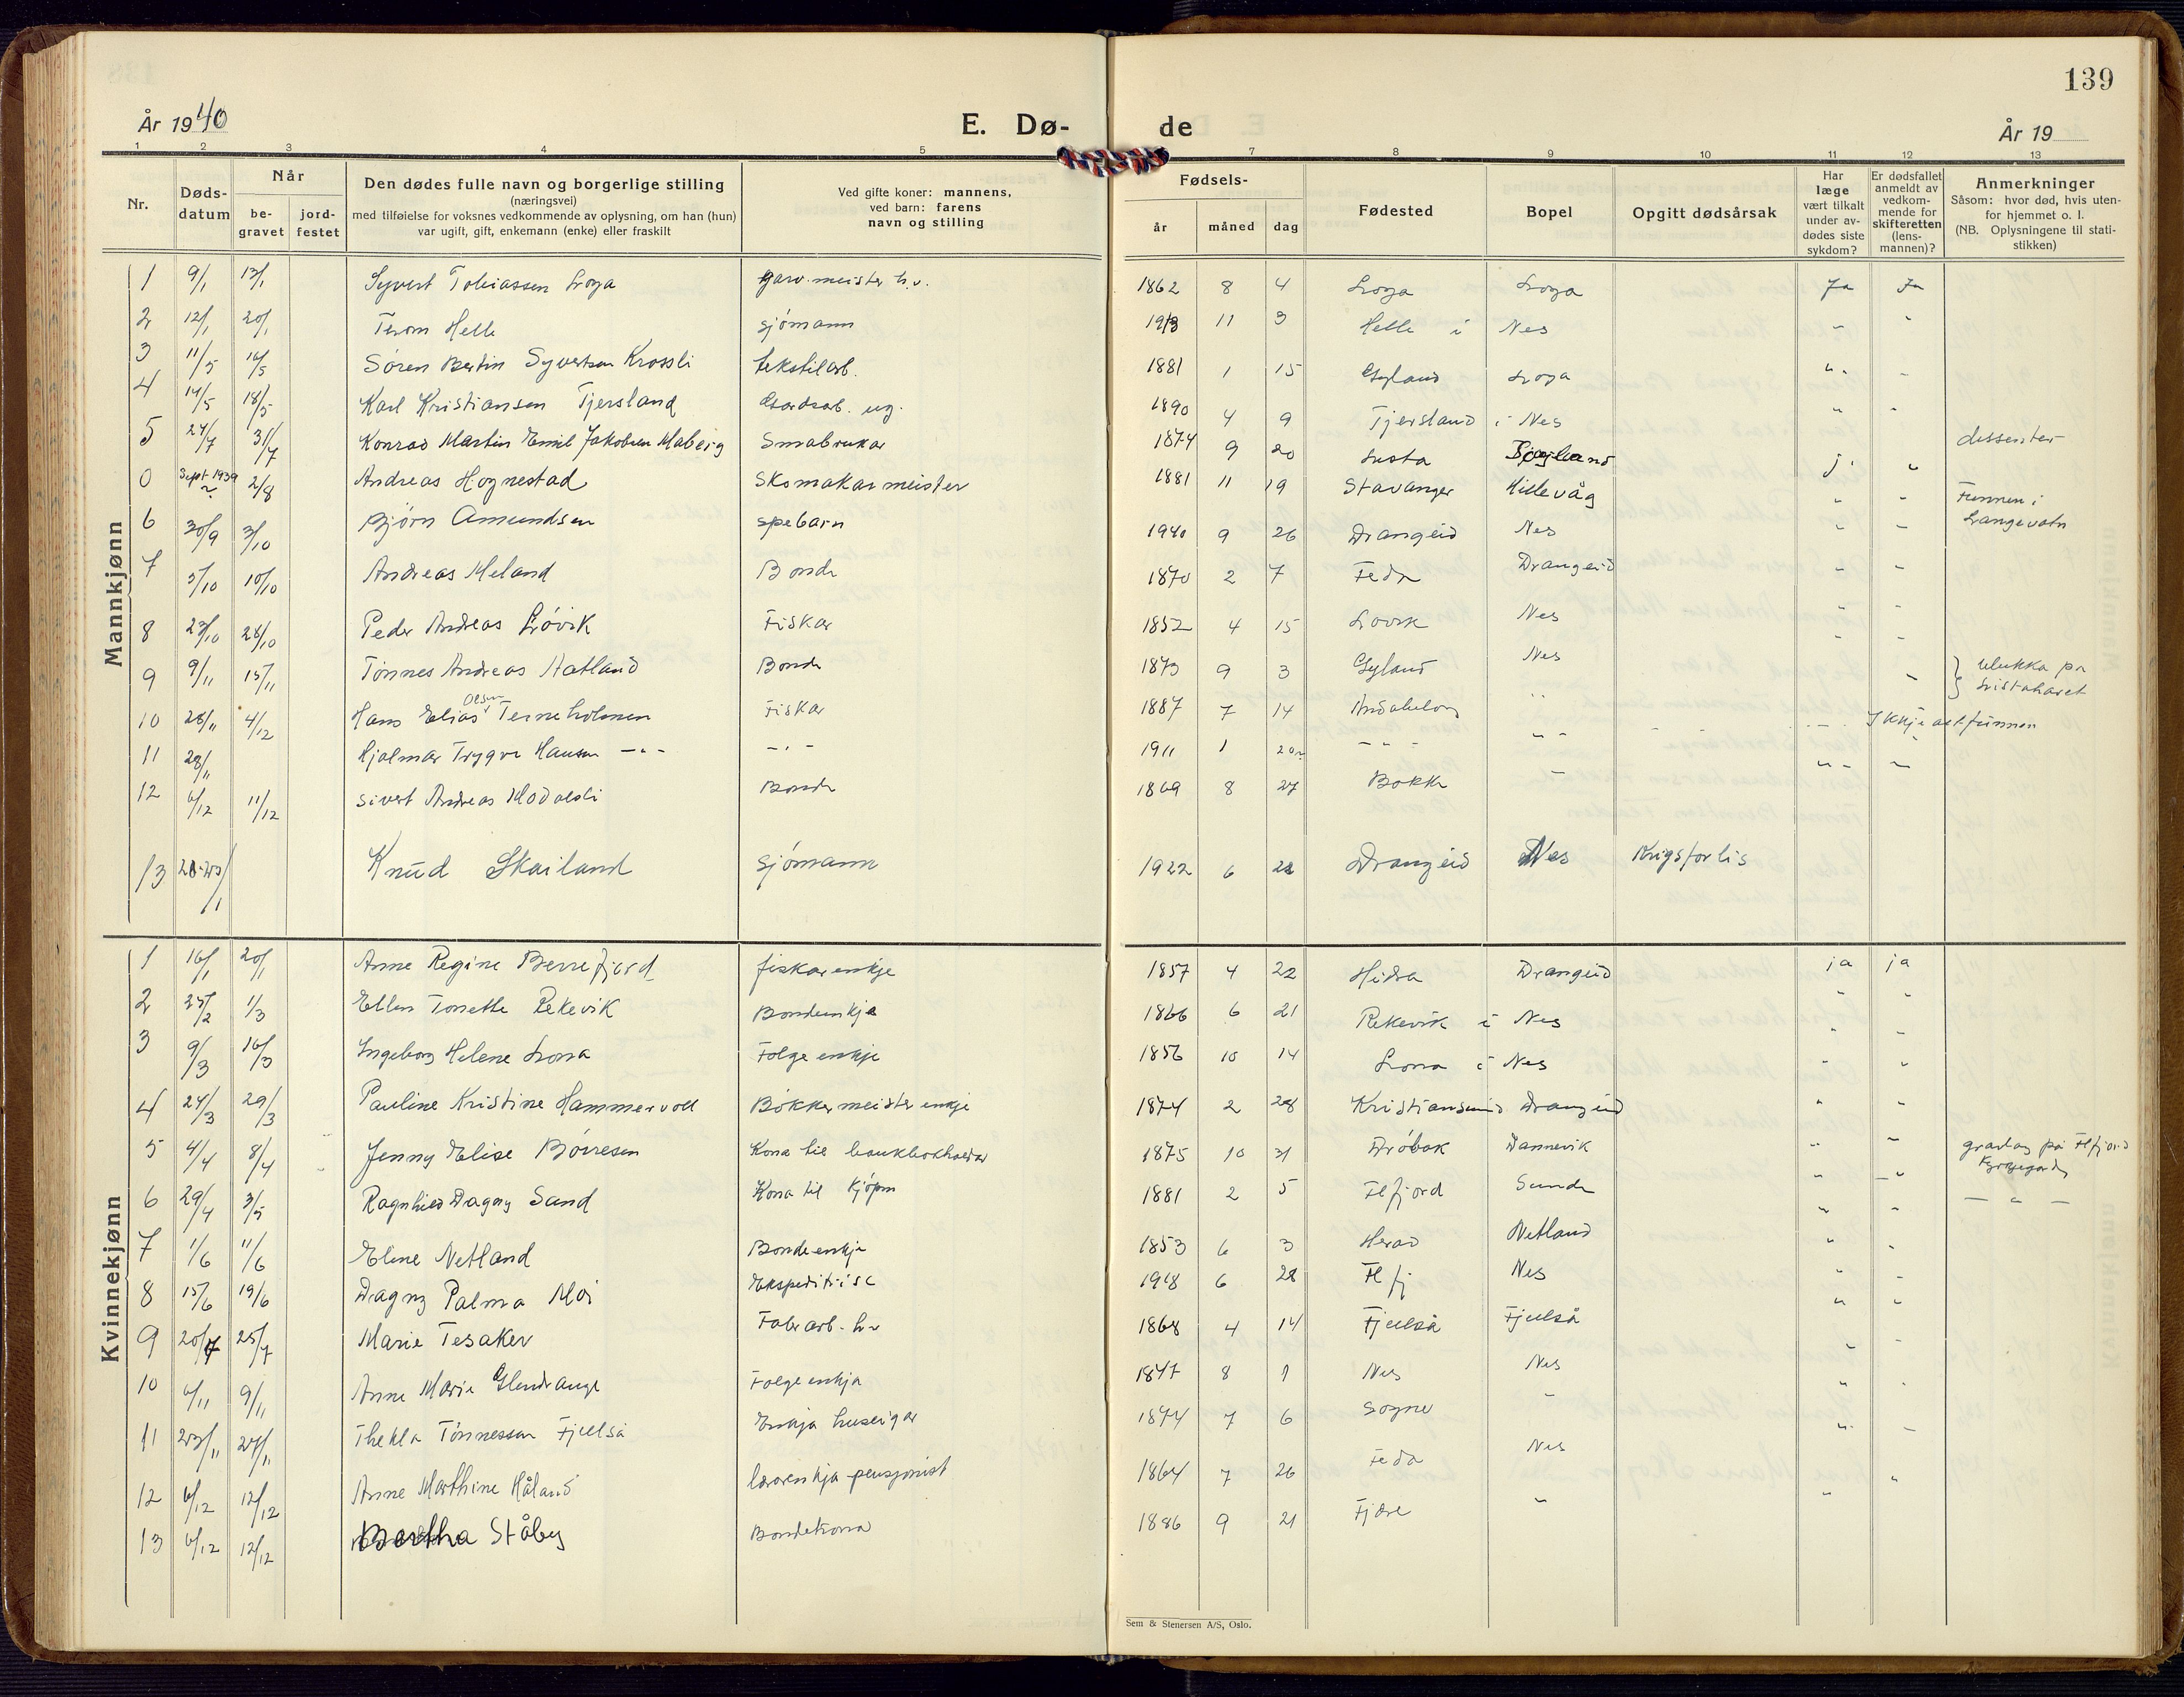 139
År 1940
E. Dø-
de
År 19
1 2 3 4 5 7 8 9 10 11 12 13
Nr.
Døds-
datum
Når
be-
gravet
jord-
festet
Den dødes fulle navn og borgerlige stilling
(næringsvei)
med tilføielse for voksnes vedkommende av oplysning, om han (hun)
var ugift, gift, enkemann (enke) eller fraskilt
Ved gifte koner: mannens,
ved barn: farens
navn og stilling
Fødsels-
år måned dag
Fødested
Bopel
Opgitt dødsårsak
Har
læge
vært tilkalt
under av-
dødes siste
sykdom?
Er dødsfallet
anmeldt av
vedkom-
mende for
skifteretten
(lens-
mannen)?
Anmerkninger
Såsom: hvor død, hvis uten-
for hjemmet o. l.
(NB. Oplysningene til stati-
stikken)
Mannkjønn
1 9/1 13/1 Syvert Tobiassen Loga garv.meister h.v. 1862 8 4 Loga Loga Ja Ja
2 12/1 20/1 Thom Helle sjómann 1913 11 3 Helle i Nes
3 11/5 16/5 Søren Bertin Syvertsen Krossli tekstilarb. 1881 1 15 Gyland Loga
4 14/5 18/5 Karl Kristiansen Tjersland Gardsarb. ug. 1890 4 9 Tjersland i Nes
5 24/7 31/7 Konrad Martin Emil Jakobsen Maberg Småbrukar 1874 9 20 Lista dissenter
0 Sept 1939 2/8 Andreas Hognestad Skomakarmeister 1881 11 19 Stavanger Hillevåg Funnen i
Langevatn
6 30/9 3/10 Bjørn Amundsen spebarn 1940 9 26 Drangeid Nes
7 5/10 10/10 Andreas Meland Bonde 1870 2 7 Feda Drangeid
8 23/10 28/10 Peder Andreas Lóvik Fiskar 1852 4 15 Lovik Nes
9 9/11 15/11 Tønnes Andreas Hatland Bonde 1873 9 3 Gyland Nes ulukka på
Listahavet
10 28/11 4/12 Hans Elias Olsen Terneholmen Fiskar 1887 7 14 " Ikkje attfunnen
11 28/11 Hjalmar Trygve Hansen - " - - " - 1911 1 20 - " - - " -
12 6/12 11/12 Sivert Andreas Modalsli Bonde 1869 8 27 Bakke
13 20-25/1 Knud Skailand sjómann 1922 6 22 Drangeid Nes Krigsforlis
Kvinnekjønn
1 16/1 20/1 Anne Regine Berrefjord fiskarenkje 1857 4 22 Hidra Drangeid ja ja
2 25/2 1/3 Ellen Tonette Rekevik Bondeenkje 1866 6 21 Rekevik i Nes
3 9/3 16/3 Ingeborg Helene Lona Folgeenkje 1856 10 14 Lona i Nes
4 24/3 29/3 Pauline Kristine Hammervoll Bókkermeister enkje 1874 2 28 Kristiansund Drangeid
5 4/4 8/4 Jenny Elise Bórresen Kona til bankbokhaldar 1875 10 31 Dróbak Dannevik gravlag på Flfjord
Kyrkjegard
6 29/4 3/5 Ragnhild Dagny Sand Kona til kjópm 1881 2 5 Flfjord Sunde — " —
7 1/6 11/6 Eline Netland Bondeenkje 1853 6 3 Herad Netland
8 15/6 19/6 Dagny Palma Moi Ekspeditrise 1918 6 28 Fl fj Nes
9 20/7 25/7 Marie Tesaker Fabr arb. h.v 1868 4 14 Fjellså Fjellså
10 6/11 9/11 Anne Marie Glendrange Folgeenkja 1847 8 1 Nes Nes
11 23/11 27/11 Thekla Tónnessen Fjellså Enkja huseigar 1874 7 6 Sogne
12 6/12 12/12 Anne Marthine Håland lærarenkja pensjonist 1864 7 26 Feda Nes
13 6/12 12/12 Bertha Ståby Bondekona 1886 9 21 Fjære
Sem & Stenersen A/S, Oslo.